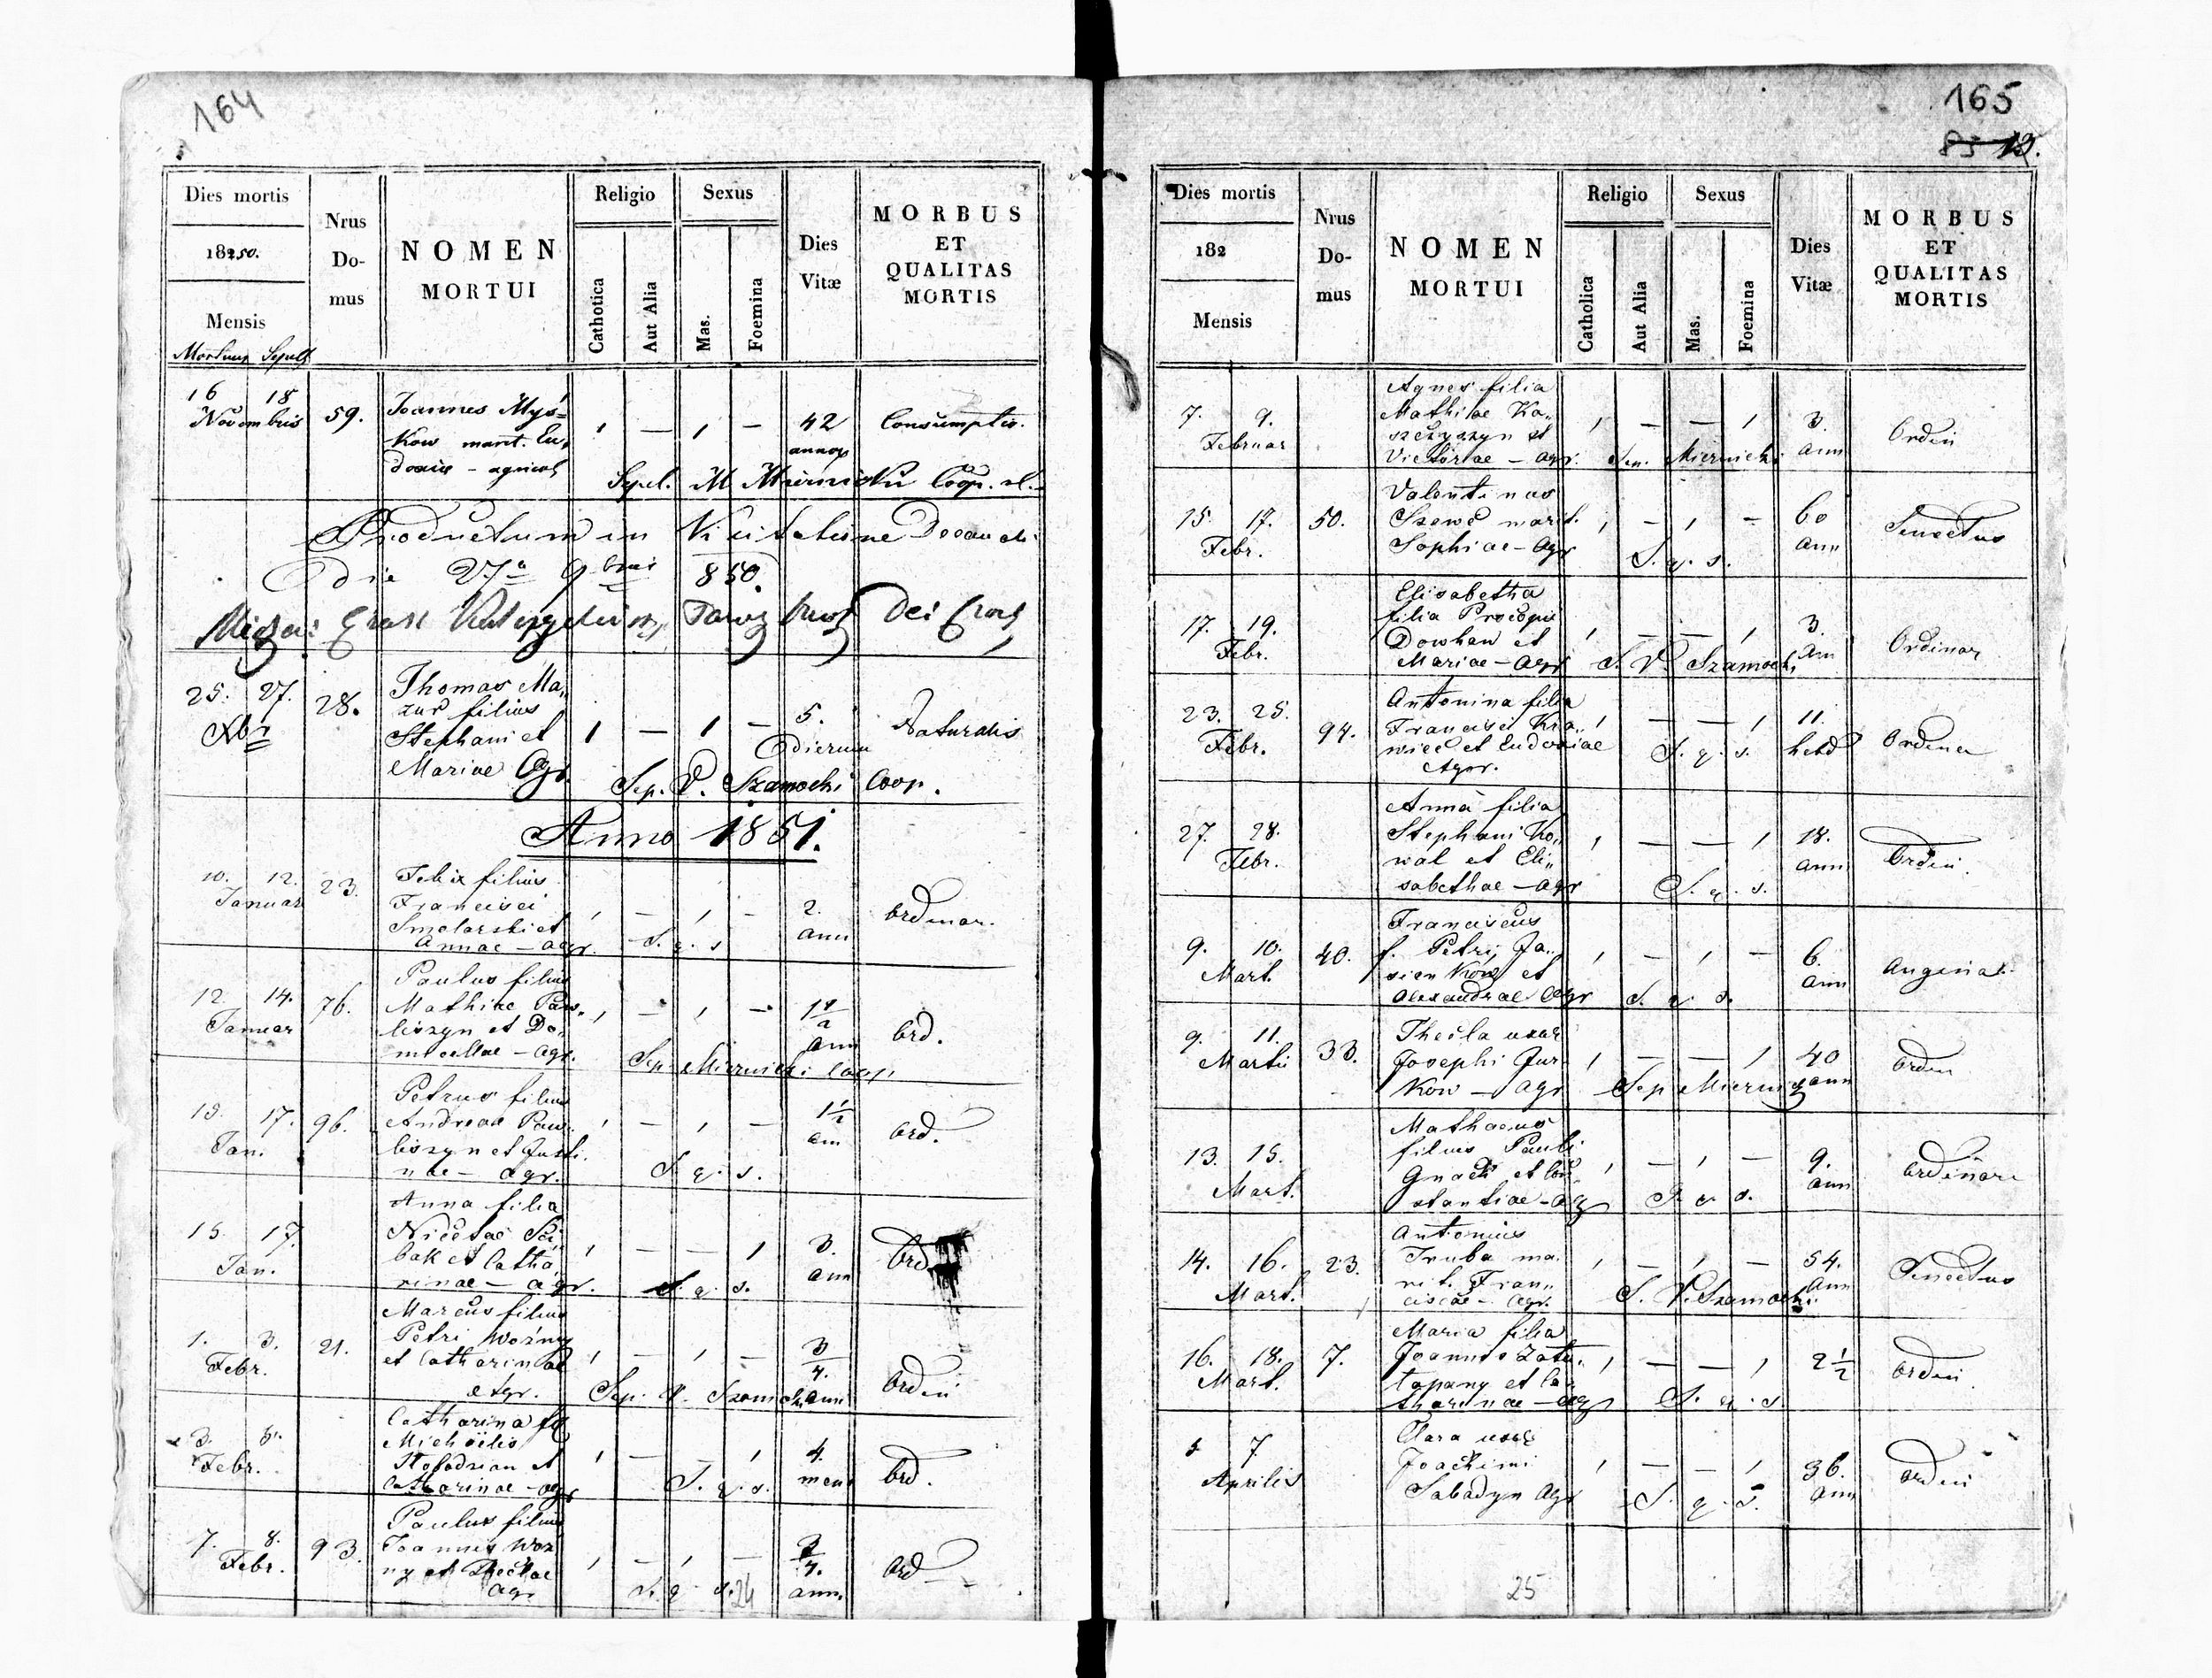 164
Dies mortis
18250.
Mensis
Mortuus Sepult
Nrus
Do-
mus
NOMEN
MORTUI
Religio
Catholica
Aut Alia
Sexus
Mas.
Foemina
Dies
Vitæ
MORBUS
ET
QUALITAS
MORTIS
16 18
Novembris
59.
Joannes Myś=
kow marit. Eu,
doxiae - agricol
1 — 1 —
42
annor
Consumptio.
Sepel. M Miernicki Coop. 
Productum in Visitatione Decanali
die 27a 9bris 850.
25. 27.
Xbr
28.
Thomas Ma,,
zur filius
Stephani et
Mariae Agr.
1 — 1 —
5.
Dierum
Naturalis
Sep. V. Szamocki Coop.
Anno 1851.
10. 12.
Januar
23.
Felix filius
Francisci
Smolarski et
Annae — agr.
1 — 1 —
2.
ann
Ordinar.
S. q. s
12. 14.
Januar
76.
Paulus filius
Mathiae Paw,,
liszyn et Do,,
micellae — agr.
1 — 1 —
ann
Ord.
Sep. Miernicki Coop.
15. 17.
Jan.
96.
Petrus filius
Andreae Paw,,
liszyn et Justi,
nae — agr.
1 — 1 —
1½
ann
Ord.
S. q. s.
15. 17.
Jan.
Anna filia
Nicetae Sci,,
bak et Catha,
rinae — agr.
1 — — 1
3.
ann
Ord
S. q. s.
1. 3.
Febr.
21.
Marcus filius
Petri Woźny
et Catharinae
Agr.
1 — 1 —
3/4.
ann
Ordin
Sep. V. Szamocki
3. 5.
Febr.
Catharina fil
Michaëlis
et
Catharinae — agr
1 — — 1
4.
mens
Ord.
S. q. s.
7. 8.
Febr.
93.
Paulus filius
Joannis Woź
ny et Theclae
Agr
1 — 1 —
3/4.
ann.
Ord
S. q. s.
24
165
83 12.
Dies mortis
182
Mensis
Nrus
Do-
mus
NOMEN
MORTUI
Religio
Catholica
Aut Alia
Sexus
Mas.
Foemina
Dies
Vitæ
MORBUS
ET
QUALITAS
MORTIS
7. 9.
Februar
Agnes filia
Mathiae Ka,,
szczyszyn et
Victoriae — agr.
1 — — 1
3.
ann
Ordin
Sep. Miernicki
15. 17.
Febr.
50.
Valentinus
Szewc marit.
Sophiae — Agr
1 — 1 —
60
ann
Senectus
S. q. s.
17. 19.
Febr.
Elisabetha
filia Procopii
Dowhan et
Mariae — Agr
1 — — 1
3.
ann
Ordinar
S. V. Szamocki
23. 25.
Febr.
94.
Antonina filia
Francisci Kra,,
wiec et Eudoxiae
Agr.
1 — — 1
11.
hebd
Ordina
S. q. s.
27. 28.
Febr.
Anna filia
Stephani Ko,,
wal et Eli,,
sabethae — agr
1 — — 1
18.
ann
Ordin.
S. q. s.
9. 10.
Mart.
40.
Franciscus
f. Petri Ja,,
sien Kow et
Alexandrae Agr
1 — 1 —
6.
ann
Angina
S. q. s.
9. 11.
Martii
33.
Thecla uxor
Josephi Jur-
kow — agr
1 — — 1
40
ann
Ordin
Sep Miernicki
13. 15.
Mart.
Mathaeus
filius Pauli
Gnach et Con
stantiae — agr
1 — 1 —
9.
ann
Ordinar
S. q. s.
14. 16.
Mart.
23.
Antonius
Truba ma,
rit. Fran,,
ciscae — Agr.
1 — 1 —
54.
Ann
Senectus
S. V. Szamocki
16. 18.
Mart.
7.
Maria filia
Joannis Zatu,,
tapany et Ca,
tharinae — agr
1 — — 1
2½
Ordin
S. q. s.
5 7
Aprilis
Clara uxor
Joachimi
Sabadyn Agr
1 — — 1
36.
ann
Ordin
S. q. s.
25